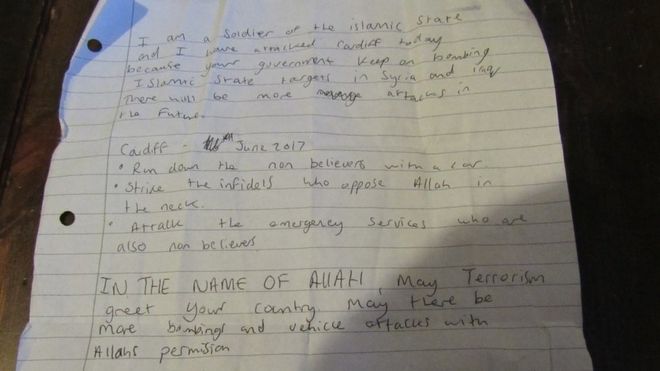 I am a Soldier of the islamic State
and I have attacked Cardiff today
because your government keep on bombing
Islamic State targets in Syria and iraq
There will be more attacks in
the future.
Cardiff - June 2017
• Run down the non believers with a car
• Strike the infidels who oppose Allah in
the neck.
• Attack the emergency services who are
also non believers
IN THE NAME OF AllAH, May Terrorism
greet your country. May there be
more bombings and vehicle attacks with
Allahs permission